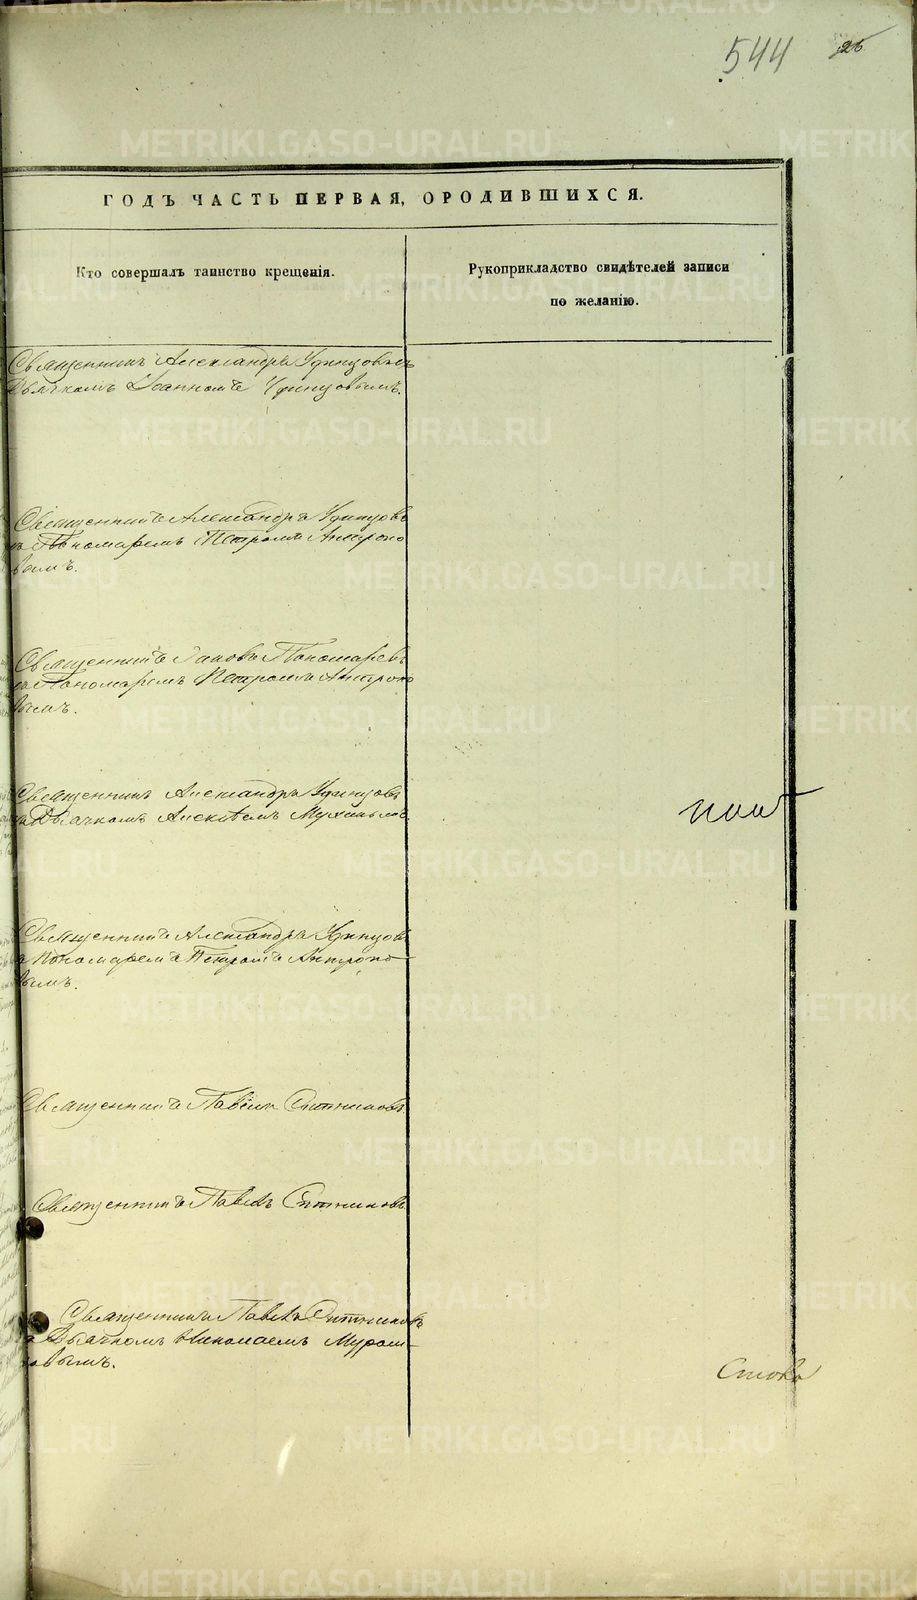 544 26
ГОДЪ ЧАСТЬ ПЕРВАЯ, ОРОДИВШИХСЯ.
Кто совершалъ таинство крещенія.
Рукоприкладство свидѣтелей записи
по желанію.
Священникъ Александръ Удинцовъ съ
Дьячкомъ Іоанномъ Удинцовымъ.
Священникъ Александръ Удинцовъ
съ Пономаремъ Петромъ Антропо
вымъ.
Священникъ Іаковъ Пономаревъ
съ Пономаремъ Петромъ Антропо
вымъ.
Священникъ Александръ Удинцовъ
съ Дьячкомъ Алексѣемъ Мухинымъ
Священникъ Александръ Удинцовъ
съ Пономаремъ Петромъ Антропо-
вымъ.
Священникъ Павелъ Ситниковъ
Священникъ Павелъ Ситниковъ
Священникъ Павелъ Ситниковъ
съ Дьячкомъ Николаемъ
METRIKI.GASO-URAL.RU